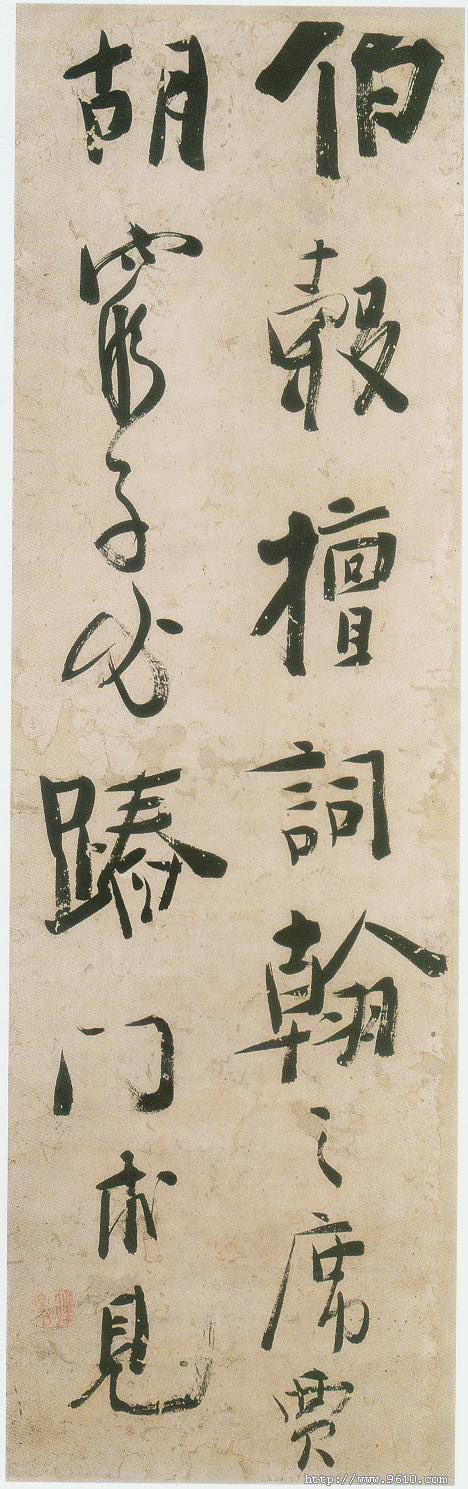 伯穀擅詞翰之席賈
胡子必門求見
http://www.9610.com